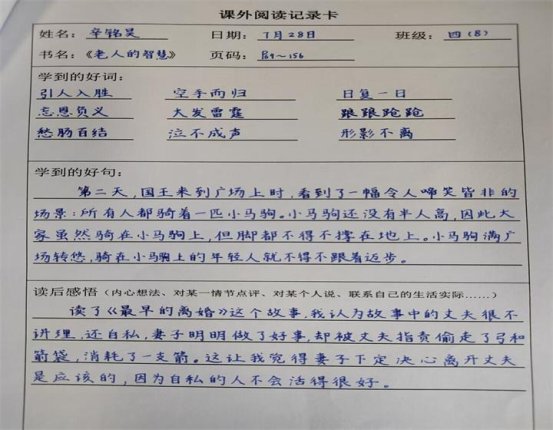 课外阅读记录卡
姓名：辛铭昊 日期：7月28日 班级：四（8）
书名：《老人的智慧》 页码：89~156
学到的好词：
引人入胜 空手而归 日复一日
忘恩负义 大发雷霆 踉踉跄跄
愁肠百结 泣不成声 形影不离
学到的好句：
第二天，国王来到广场上时，看到了一幅令人啼笑皆非的
场景：所有人都骑着一匹小马驹。小马驹还没有半人高，因此大
家虽然骑在小马驹上，但脚都不得不撑在地上。小马驹满广
场转悠，骑在小马驹上的年轻人就不得不跟着迈步。
读后感悟（内心想法、对某一情节点评、对某个人说、联系自己的生活实际……）
读了《最早的离婚》这个故事，我认为故事中的丈夫很不
讲理，还自私，妻子明明做了好事，却被丈夫指责偷走了弓和
箭袋，消耗了一支箭。这让我觉得妻子下定决心离开丈夫
是应该的，因为自私的人不会活得很好。